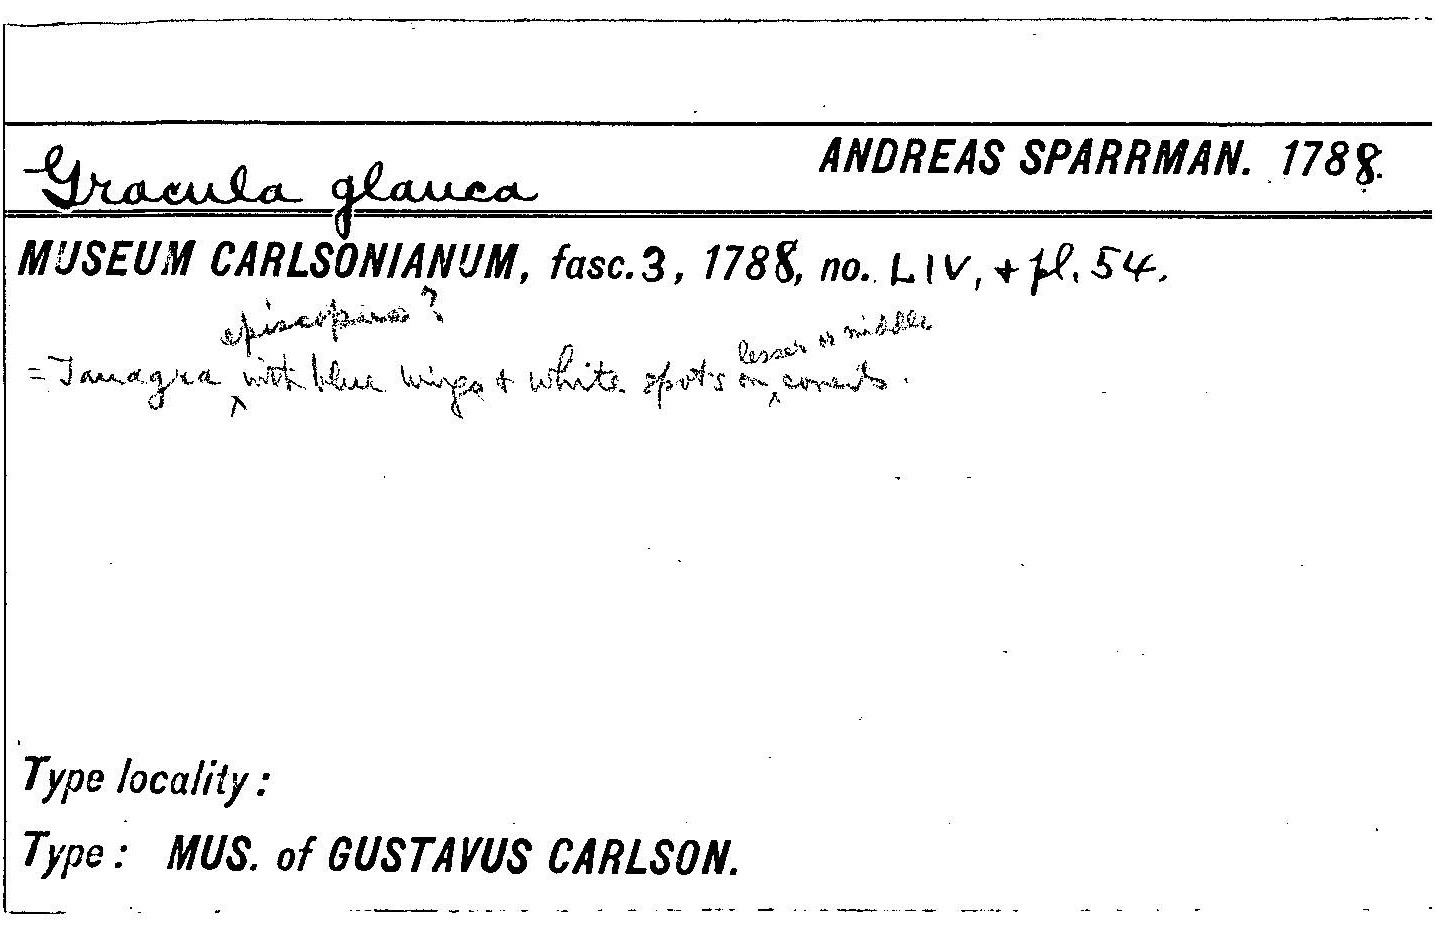 Gracula glauca
ANDREAS SPARRMAN. 1788.
MUSEUM CARLSONIANUM, fasc. 3, 1788, no. LIV, + pl. 54.
episcopus?
lesser or middle
= Tanagra ^ with blue wings + white spots on ^ coverts.
Type locality:
Type: MUS. of GUSTAVUS CARLSON.